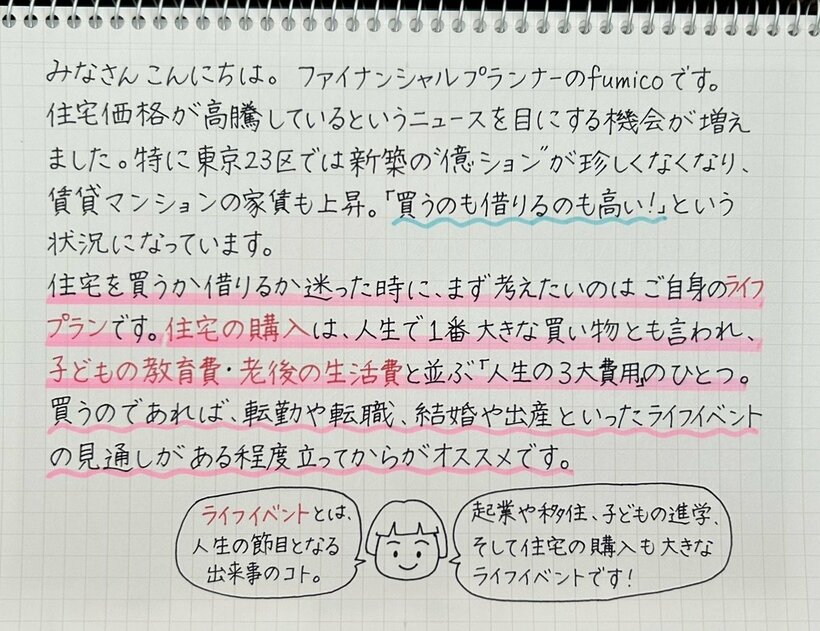 みなさんこんにちは。ファイナンシャルプランナーのfumicoです。
住宅価格が高騰しているというニュースを目にする機会が増え
ました。特に東京23区では新築の“億ション”が珍しくなくなり、
賃貸マンションの家賃も上昇。「買うのも借りるのも高い！」という
状況になっています。
住宅を買うか借りるか迷った時に、まず考えたいのはご自身のライフ
プランです。住宅の購入は、人生で1番大きな買い物とも言われ、
子どもの教育費・老後の生活費と並ぶ「人生の3大費用」のひとつ。
買うのであれば、転勤や転職、結婚や出産といったライフイベント
の見通しがある程度立ってからがオススメです。
ライフイベントとは、
人生の節目となる
出来事のコト。
起業や移住、子どもの進学、
そして住宅の購入も大きな
ライフイベントです！